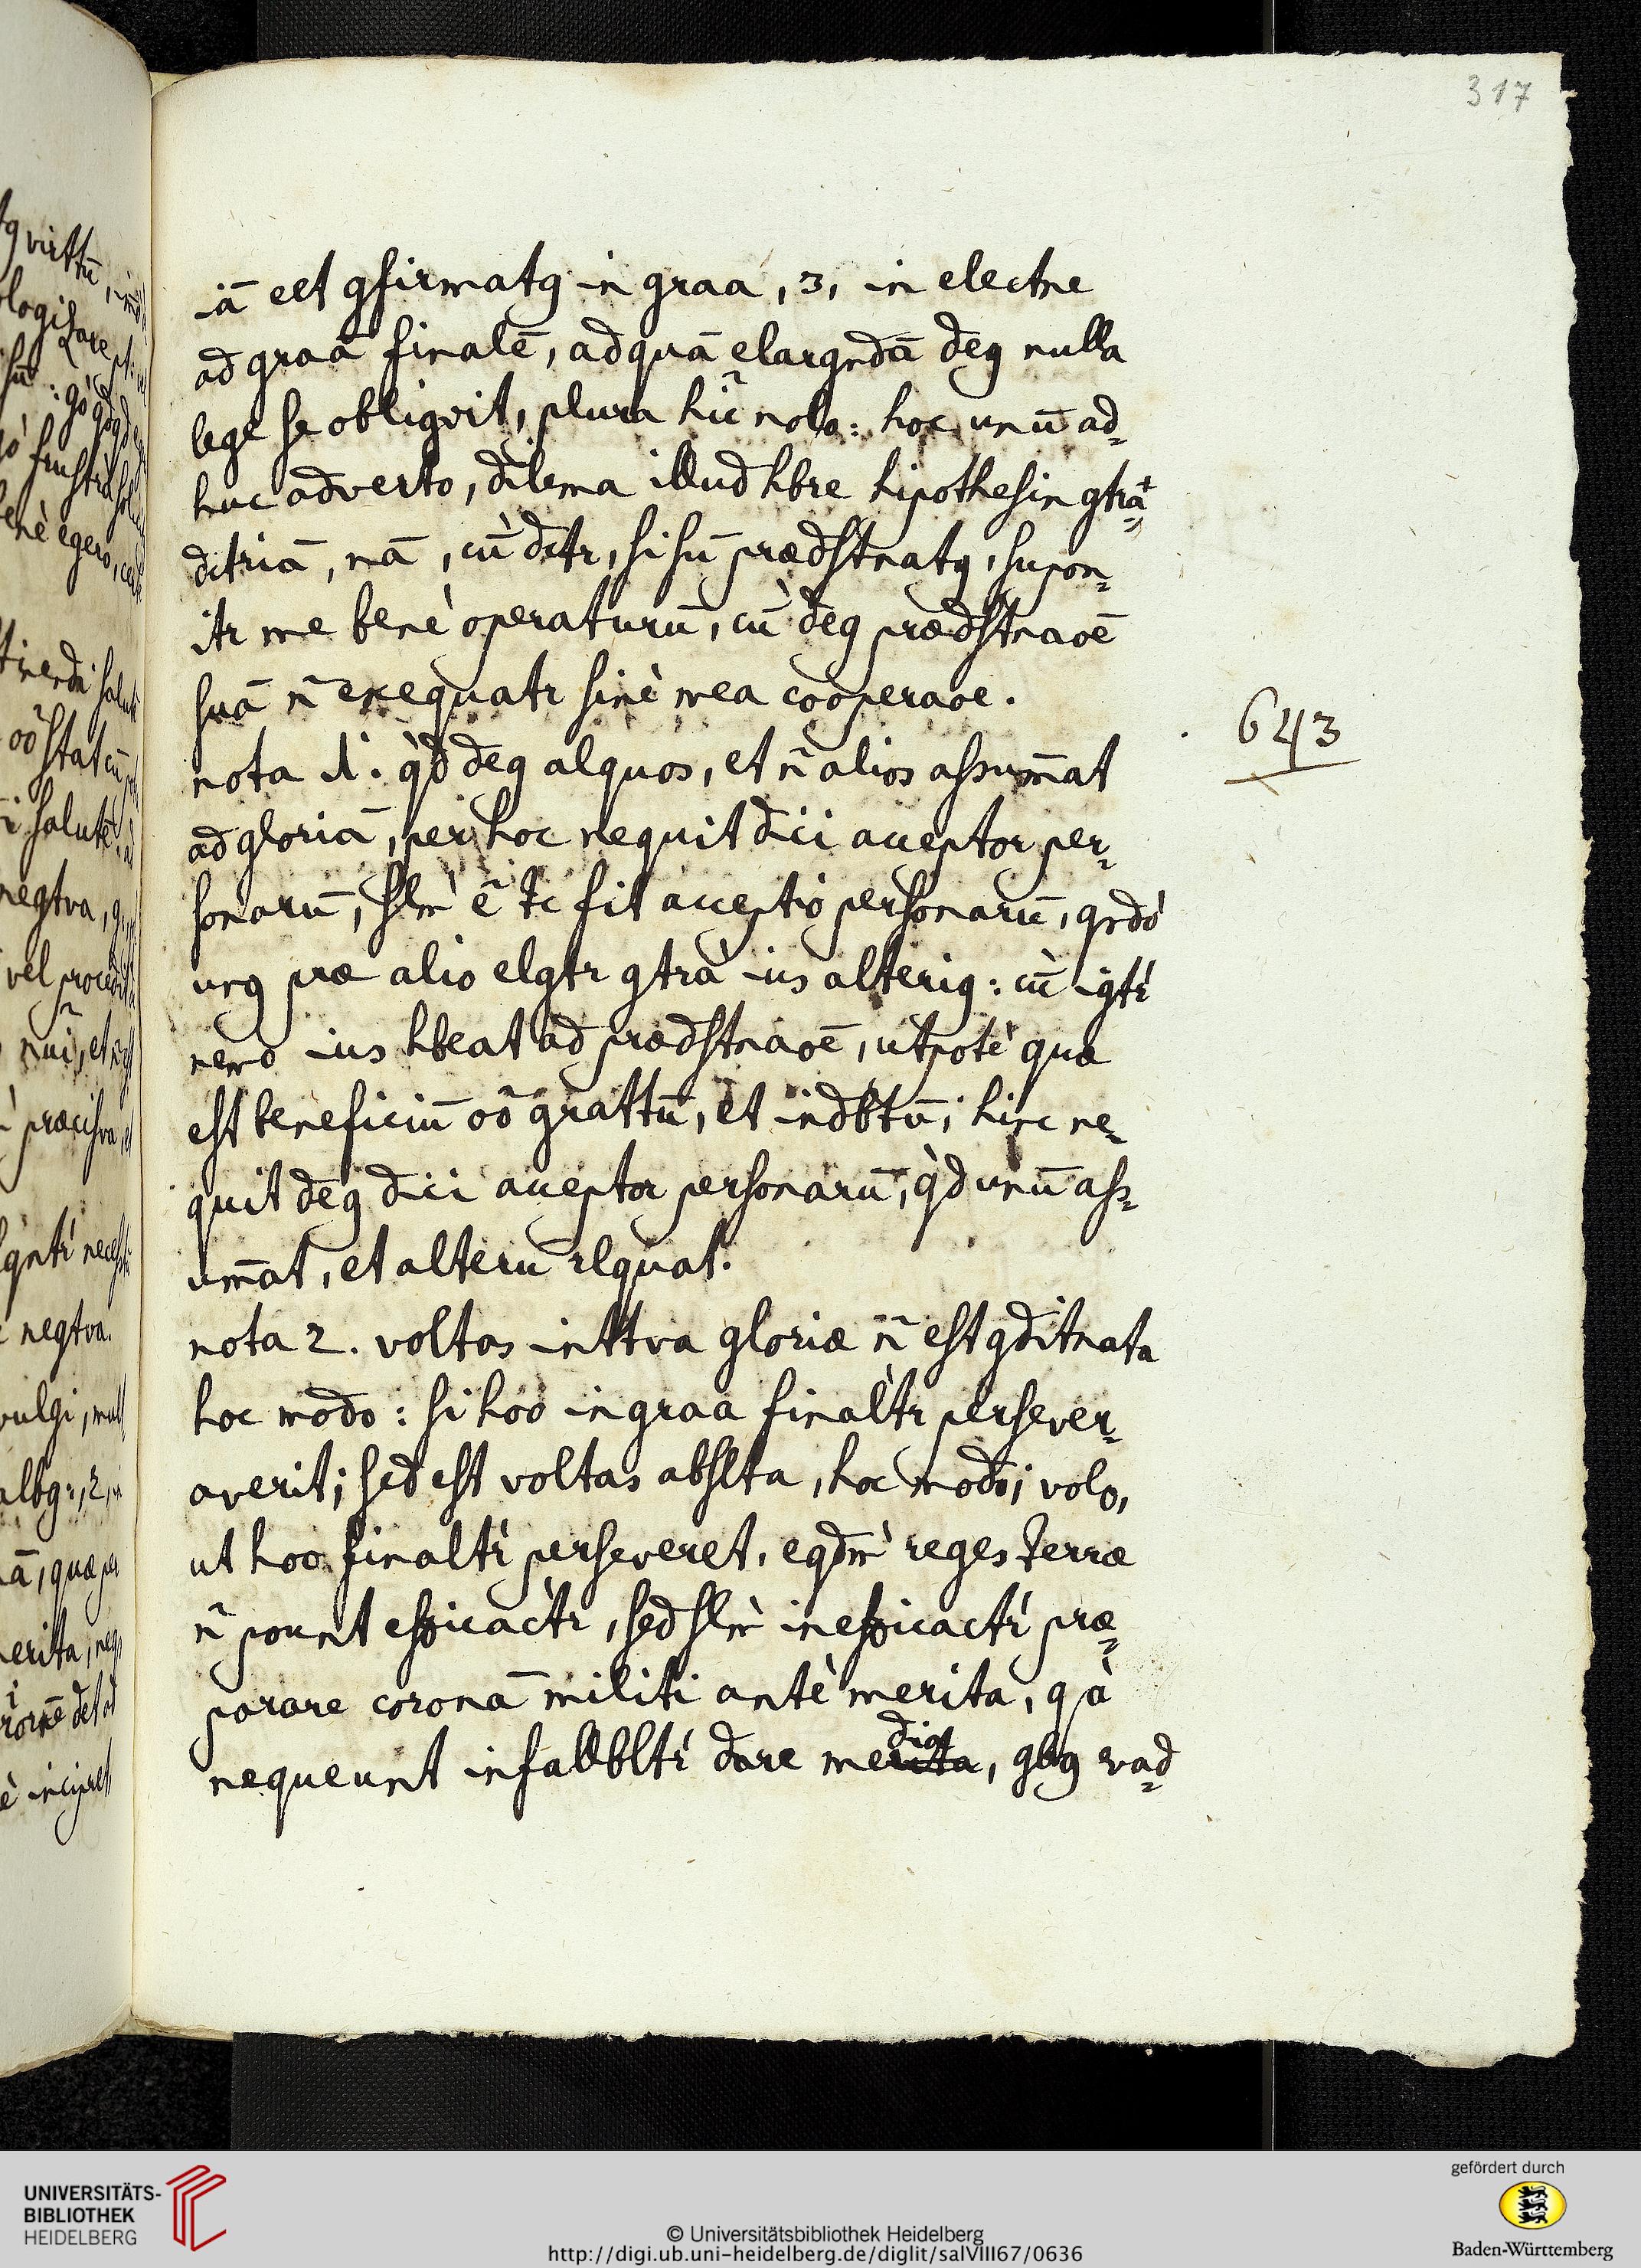 317
iā eet gfirmatg in graa, 3, in electne
ad graā finalē, ad quā elargndā deg nulla
lege se obligvit, plura hîc nolo: hoc unū ad-
huc adverto, dilema illud hbre hipothesin gtrā-
dctriā, nā, cū dctr, si sū prædstnatg, supon-
itr me benè operaturū, cū deg prædstnaoē
suā ñ exequatr sinè mea cooperaoe.
643
nota 1. q̀d deg alquos, et ñ alios assum̄at
ad gloriā, per hoc nequit dici acceptor per-
sonarū, slm̀ ē tc fit acceptio personarū, qndò
ung præ alio elgtr gtrà ius alterig: cū igtr
nemo ius hbeat ad prædstnaoē, utpotè quæ
est beneficiū oō grattū, et indbtū; hinc ne-
quit deg dici acceptor personarū, q̀d unū ass-
um̄at, et alterū rlquat.
nota 2. voltas inttva gloriæ ñ est gditnata
hoc modo: si hoo in graa finaltr persever-
averit; sed est voltas abslta, hoc modo; volo,
ut hoo finaltr perseveret, eqdm̀ reges terræ
ñ pount efficactr, sed slm̀ inefficactr præ-
parare coronā militi antè merita, qà
nequeunt infallbltr dare merita, gbg vad-
dia
iā
virttū
logizare
frustra
benè egero
tinendi
stat cū
salutē
negtva
vel procedit
præcisva
negtva.
vulgi
quæ per
erita
incipret
UNIVERSITÄTS-
BIBLIOTHEK
HEIDELBERG
© Universitätsbibliothek Heidelberg
http://digi.ub.uni-heidelberg.de/diglit/salVIII67/0636
gefördert durch
Baden-Württemberg